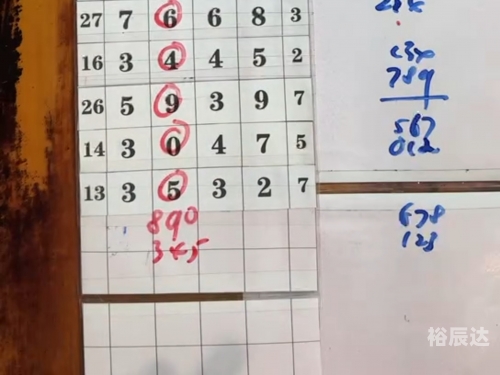 27 7 6 6 8 3
16 3 4 4 5 2
26 5 9 3 9 7
14 3 0 4 7 5
13 3 5 3 2 7
890
345
789
567
012
678
123
裕辰达